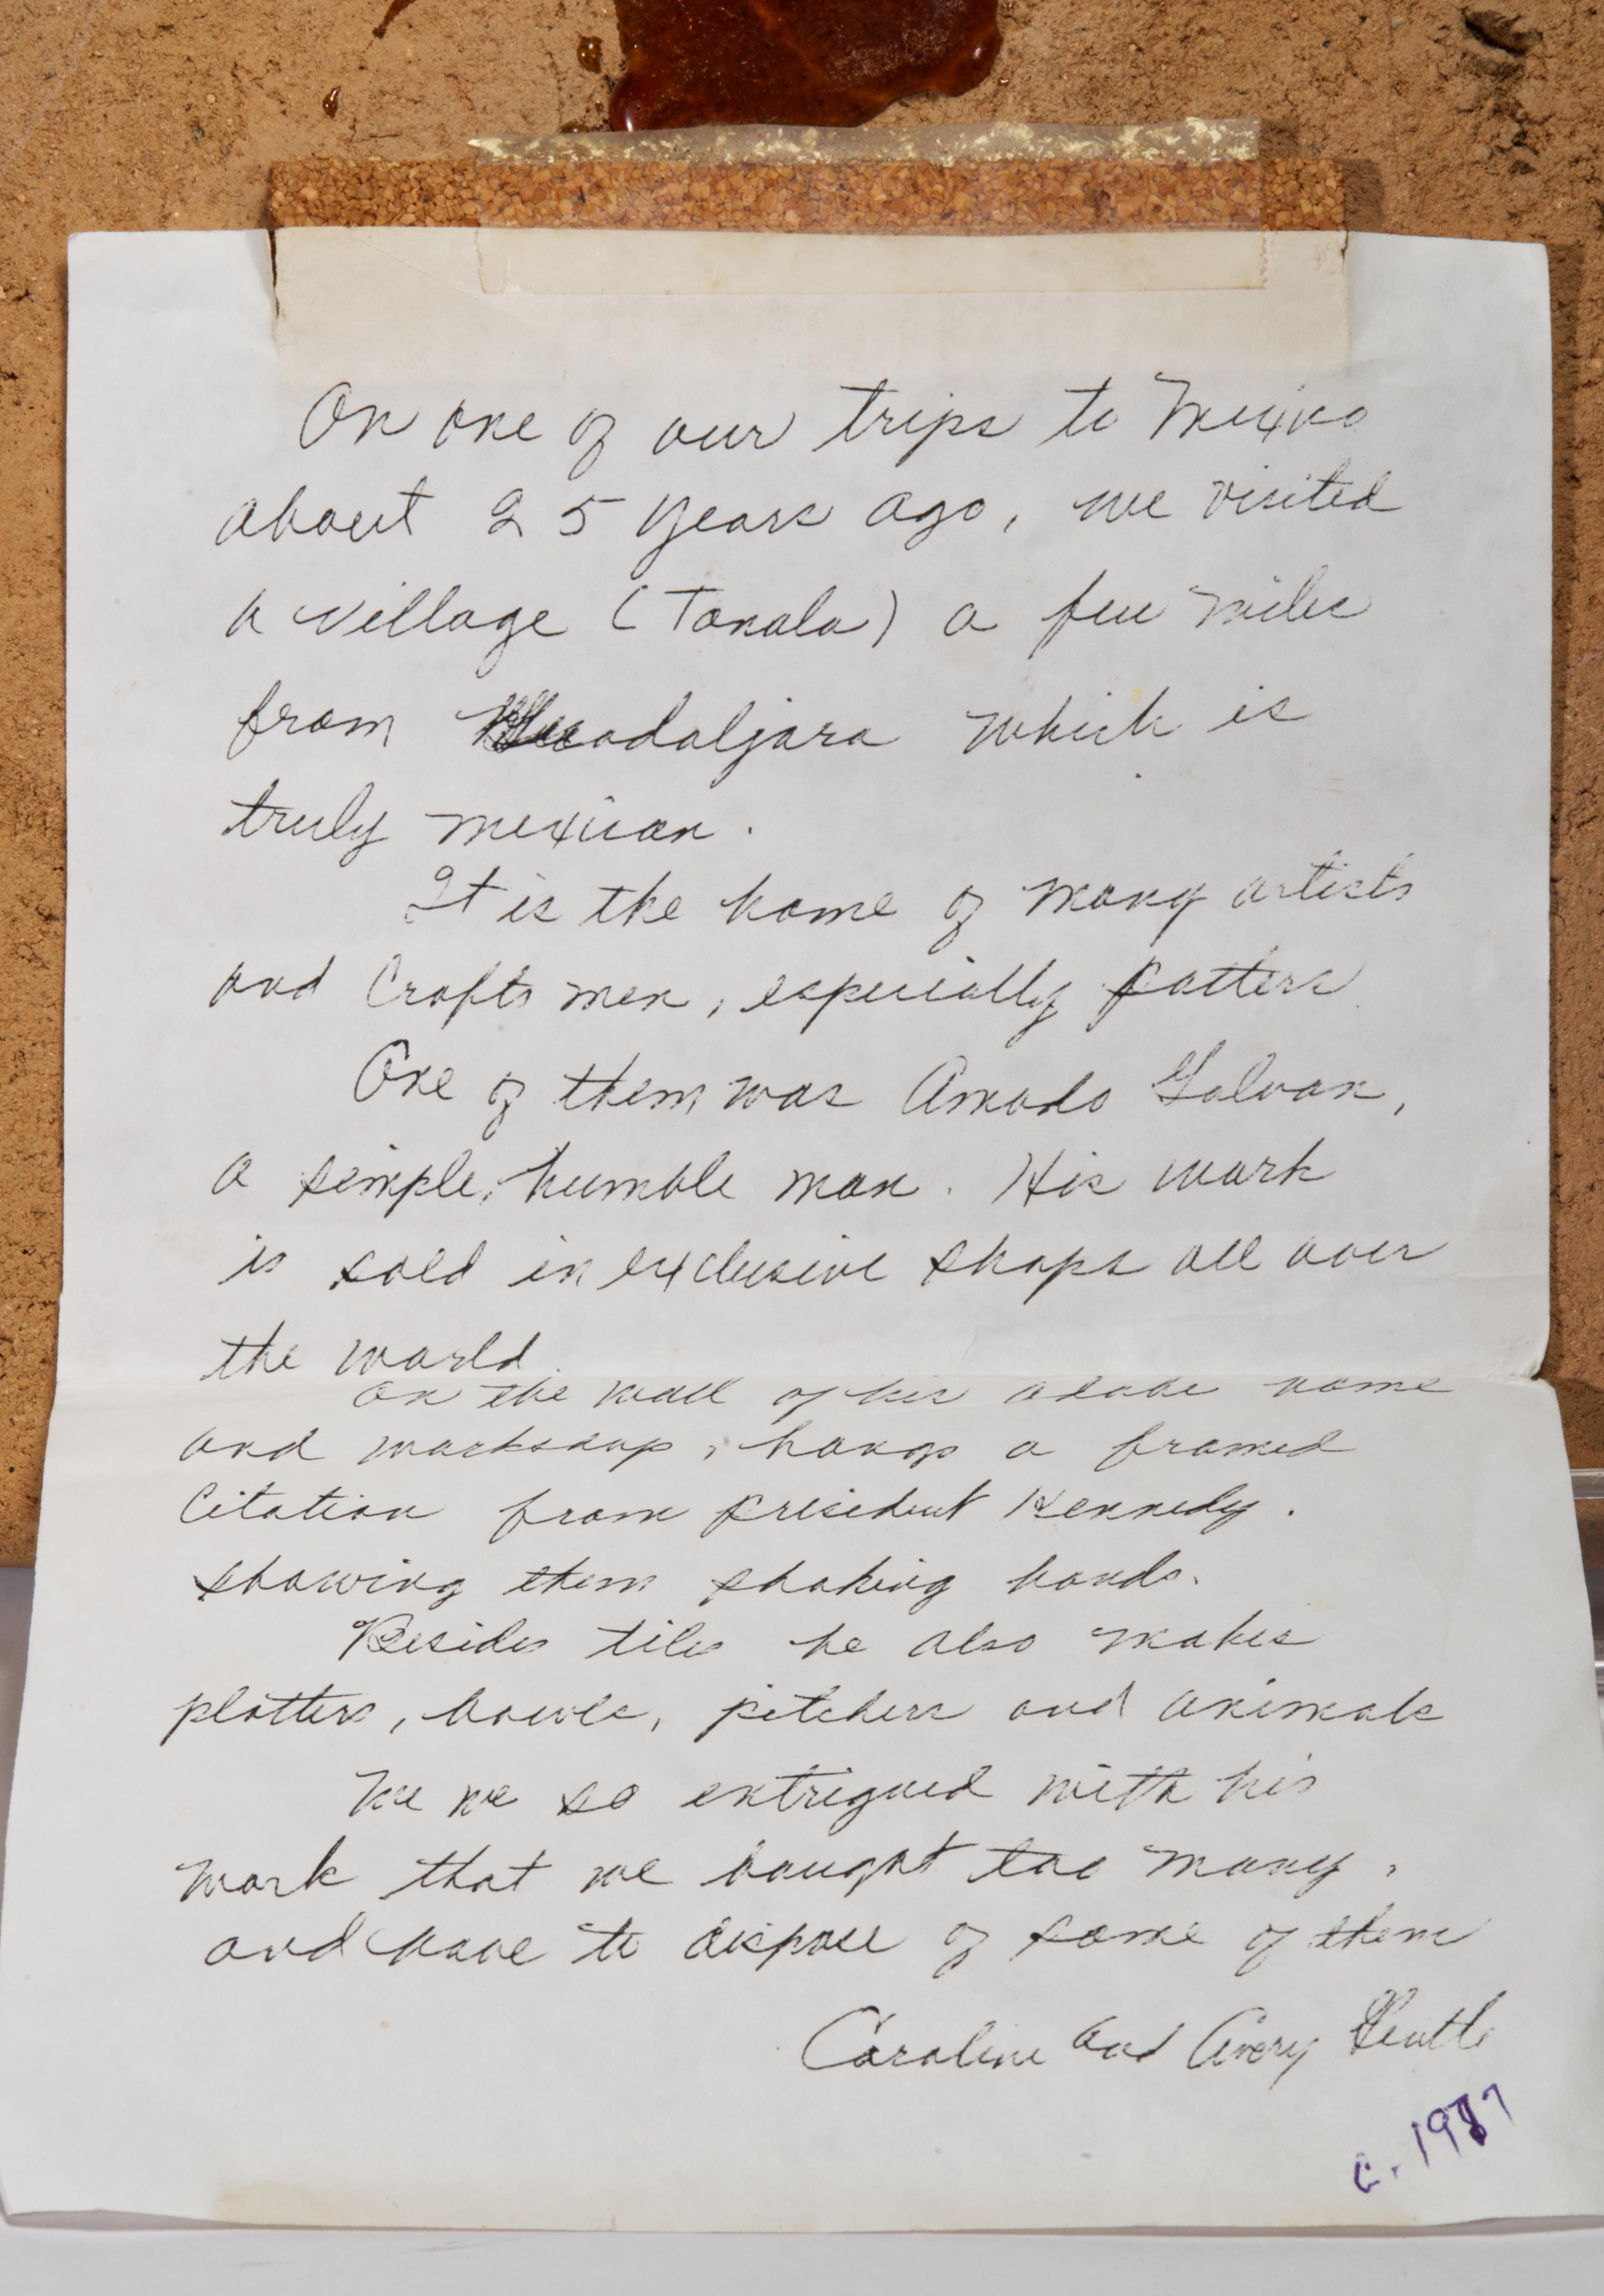 On one of our trips to Mexico
about 25 years ago, we visited
a village (Tonala) a few miles
from Guadaljara which is
truly mexican.
It is the home of many artists
and Crafts men, especially potters
One of them was Amado Galvan,
a simple, humble man. His work
is sold in exclusive shops all over
the world.
On the wall of his adobe home
and workshop, hangs a framed
Citation from president Kennedy.
showing them shaking hands.
Besides tiles he also makes
platters, bowls, pitchers and animals
We we so entrigued with his
work that we bought too many,
and have to dispose of some of them
Caroline and Avery
c. 1987